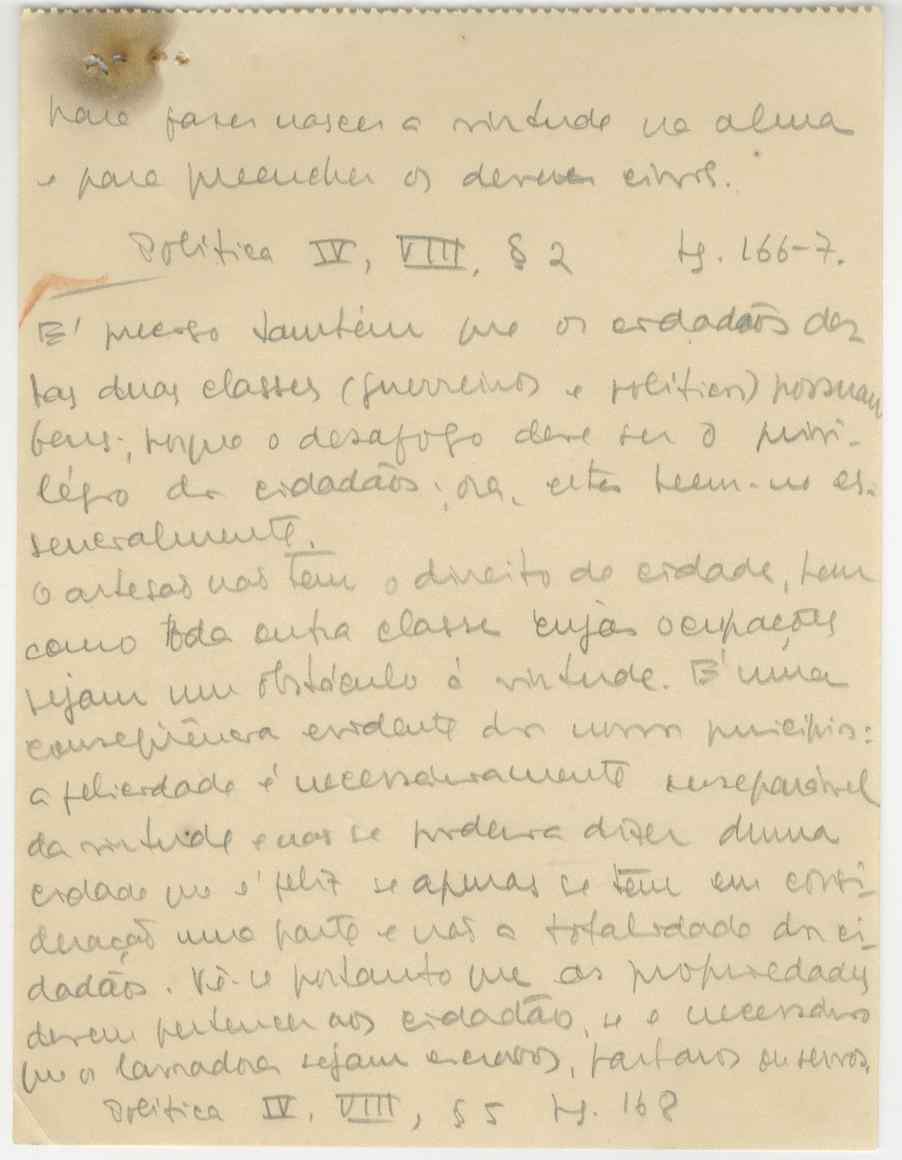 para fazer nascer a virtude na alma
e para preencher os deveres civis.
Política IV, VIII, § 2 pg. 166-7.
E' preciso também que os cidadãos des
tas duas classes (guerreiros e políticos) possuam
bens; porque o desafogo deve ser o privi-
légio dos cidadãos; ora, estes teem-no es-
sencialmente.
O artesão não tem o direito de cidade, bem
como toda outra classe cujas ocupações
sejam um obstáculo á virtude. E' uma
conseqüência evidente dos nossos princípios:
a felicidade é necessariamente inseparável
da virtude e não se poderia dizer duma
cidade que é feliz se apenas se tem em consi-
deração uma parte e não a totalidade dos ci-
dadãos. Vê-se portanto que as propriedades
devem pertencer aos cidadãos, se é necessário
que os lavradores sejam escravos, bárbaros ou servos.
Política IV, VIII, § 5 pg. 168